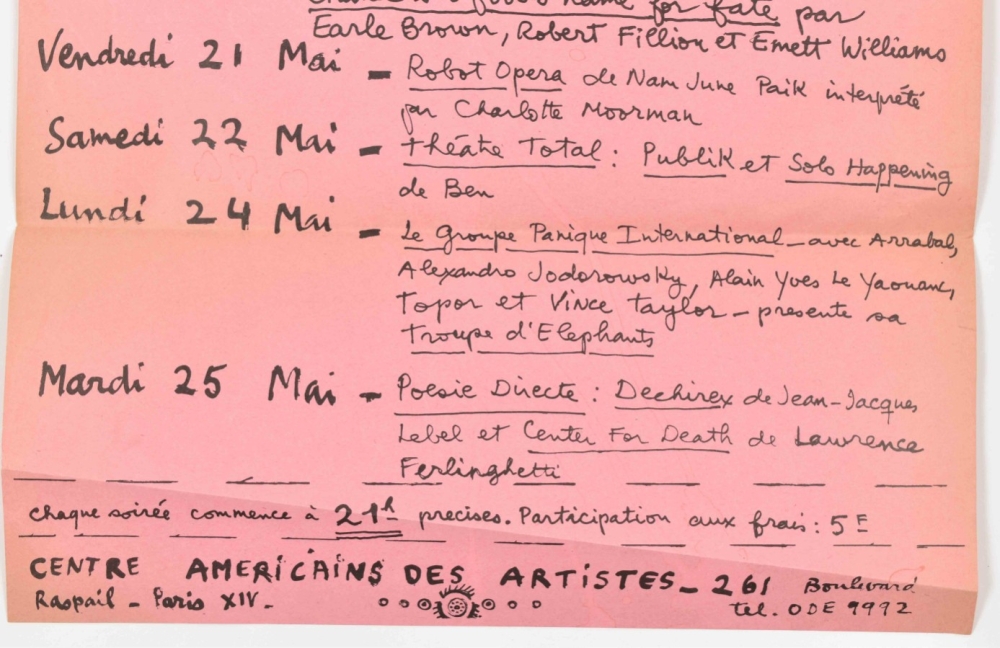 a fool's name for fate par
Earle Brown, Robert Fillion et Emett Williams
Vendredi 21 Mai - Robot Opera de Nam June Paik interprété
par Charlotte Moorman
Samedi 22 Mai - théâtre Total : Publik et Solo Happening
de Ben
Lundi 24 Mai - Le Groupe Panique International - avec Arrabal,
Alexandro Jodorowsky, Alain Yves Le Yaouanc,
Topor et Vince Taylor - presente sa
Troupe d'Elephants
Mardi 25 Mai - Poesie Directe : Dechirex de Jean-Jacques
Lebel et Center For Death de Lawrence
Ferlinghetti
chaque soirée commence à 21h precises. Participation aux frais : 5 F
CENTRE AMERICAINS DES ARTISTES - 261 Boulevard
Raspail - Paris XIV - tel. ODE 9992